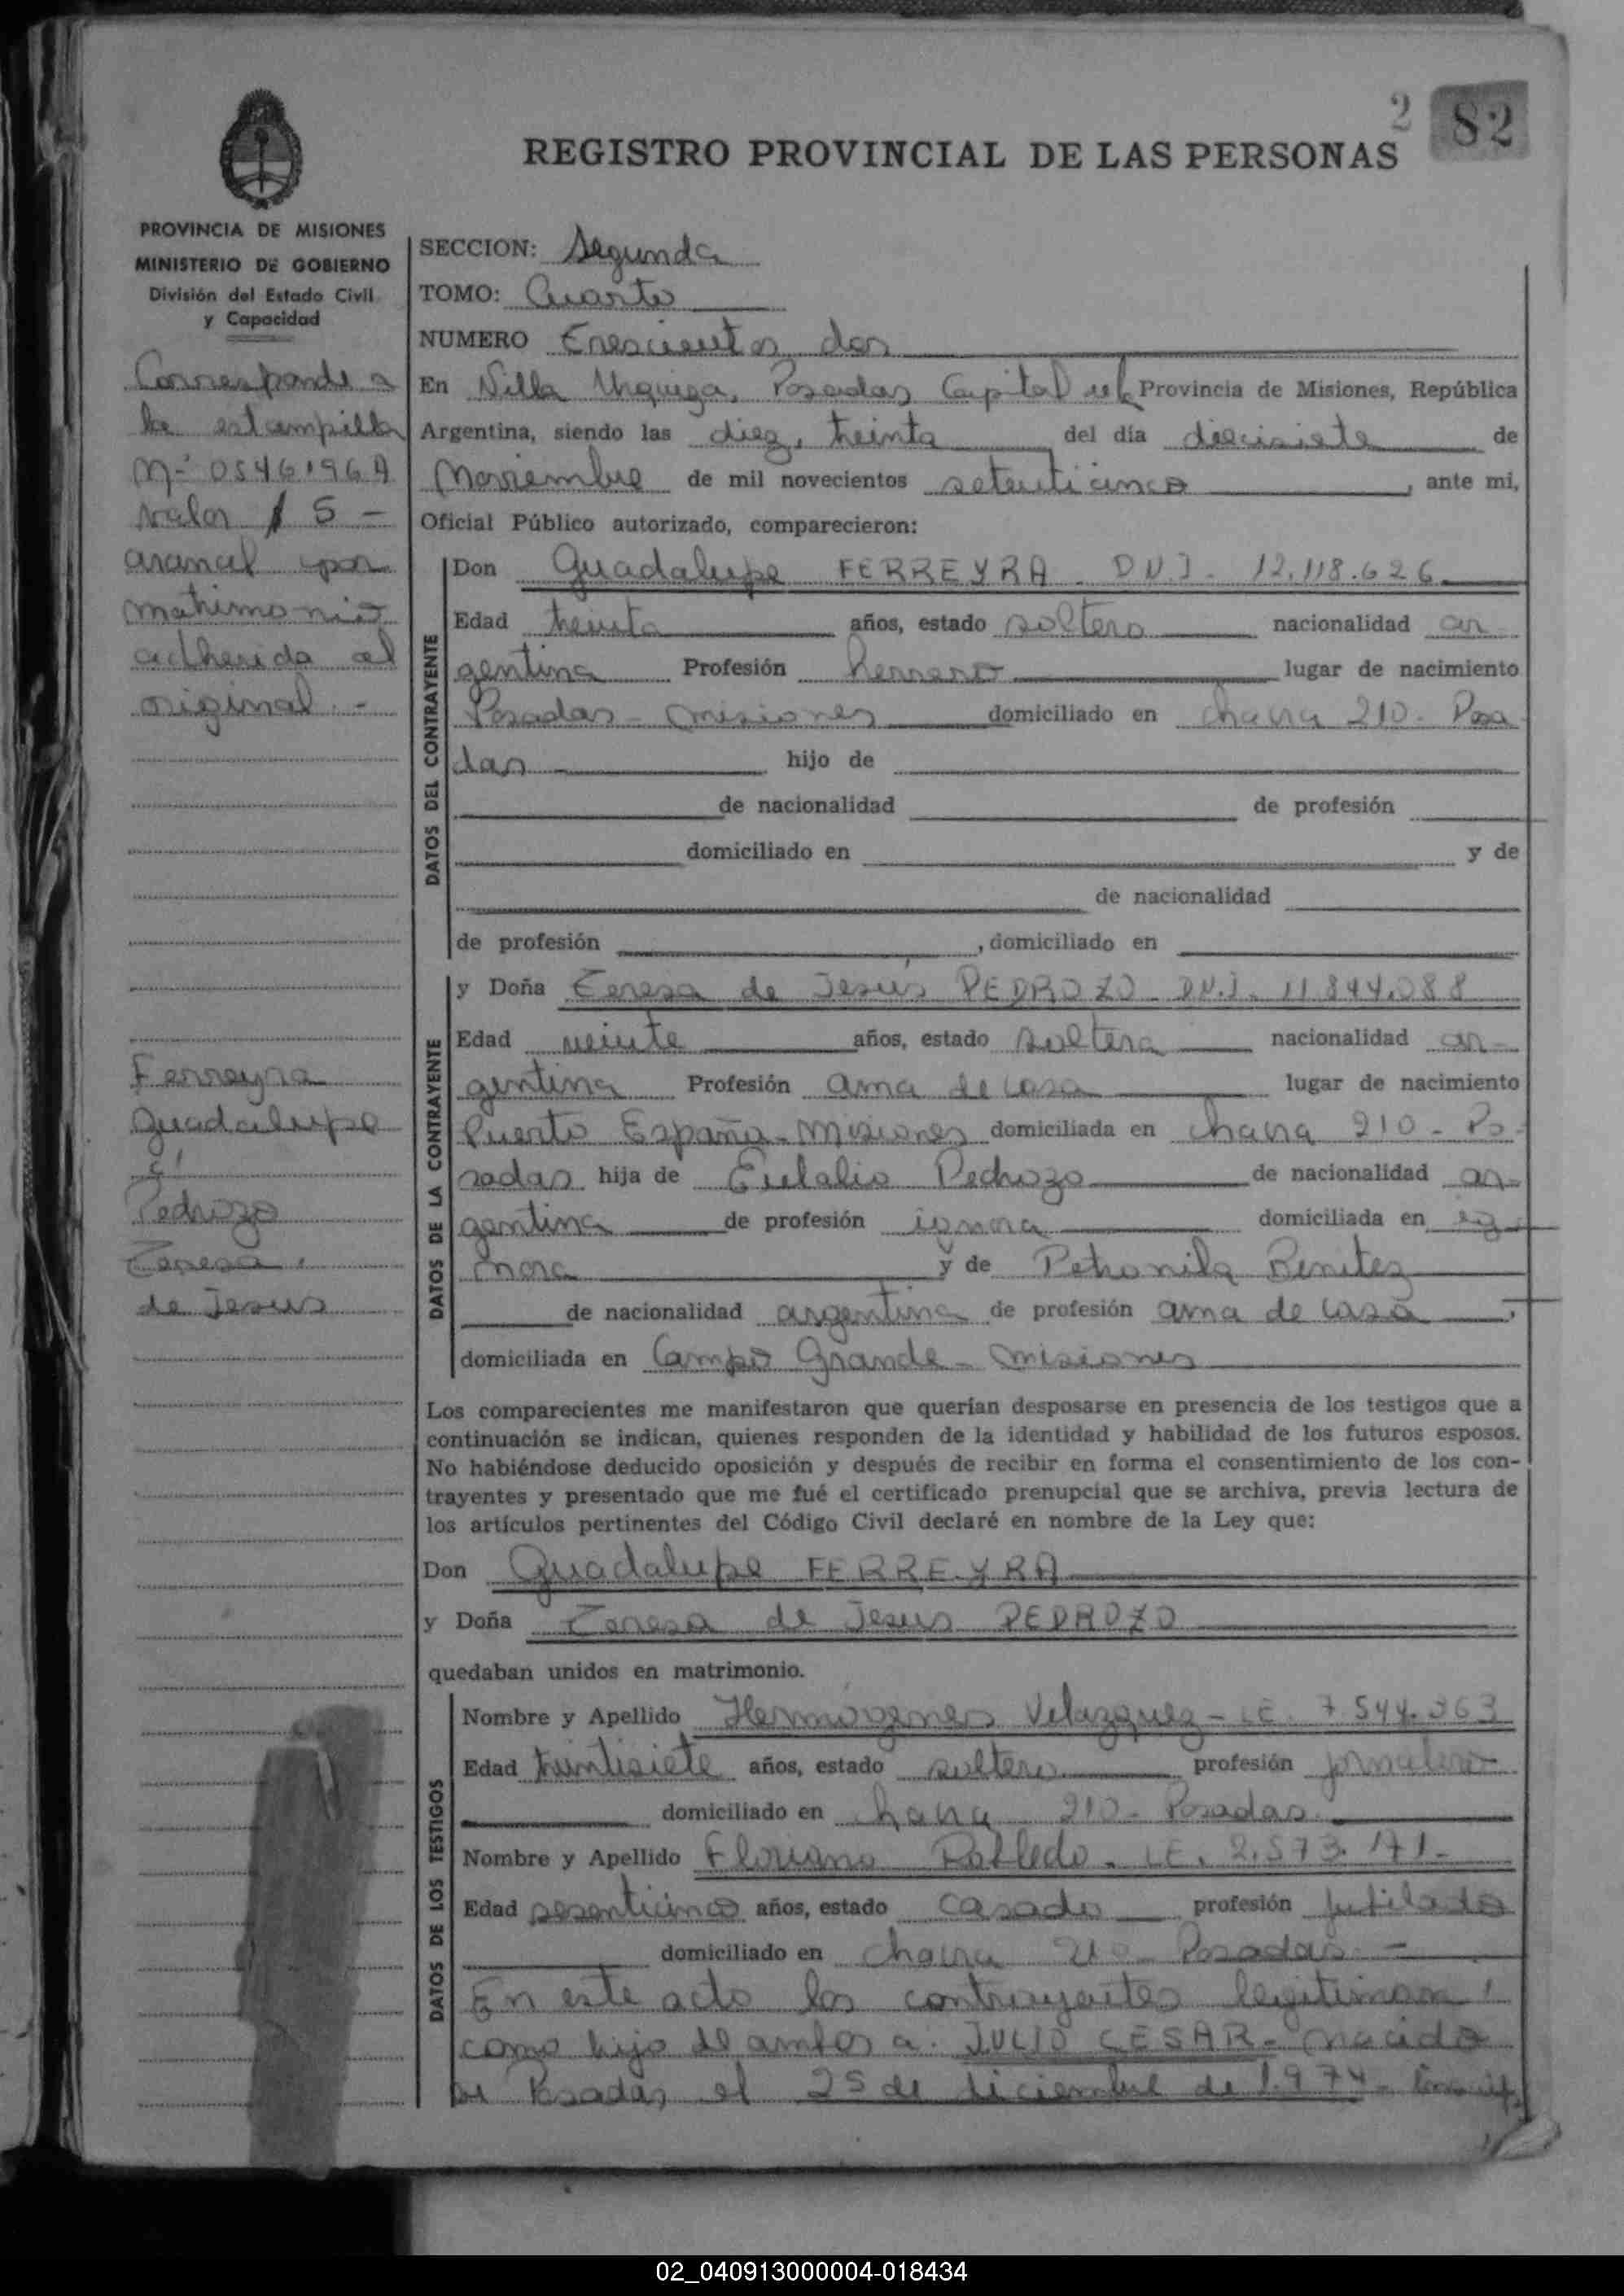 2 82
REGISTRO PROVINCIAL DE LAS PERSONAS
PROVINCIA DE MISIONES
MINISTERIO DE GOBIERNO
División del Estado Civil
y Capacidad
Corresponde a
la estampilla
Nº 0546196A
valor $ 5 -
arancel por
matrimonio
adherida al
original. -
Ferreyra
Guadalupe
c/
Pedrozo
Teresa
de Jesus
SECCION: Segunda
TOMO: Cuarto
NUMERO Trescientos dos
En Villa Urquiza, Posadas Capital de la Provincia de Misiones, República
Argentina, siendo las diez, treinta del día diecisiete de
Noviembre de mil novecientos setenticinco, ante mi,
Oficial Público autorizado, comparecieron:
DATOS DEL CONTRAYENTE
Don Guadalupe FERREYRA - D.N.I. 12.118.626
Edad treinta años, estado soltero nacionalidad ar-
gentina Profesión herrero lugar de nacimiento
Posadas - Misiones domiciliado en chacra 210 - Posa
das hijo de
de nacionalidad de profesión
domiciliado en y de
de nacionalidad
de profesión , domiciliado en
DATOS DE LA CONTRAYENTE
y Doña Teresa de Jesús PEDROZO - D.N.I. 11.844.088
Edad veinte años, estado soltera nacionalidad ar-
gentina Profesión ama de casa lugar de nacimiento
Puerto España - Misiones domiciliada en chacra 210 - Po-
sadas hija de Eulalio Pedrozo de nacionalidad ar-
gentina de profesión ignora domiciliada en ig-
nora y de Petronila Benitez
de nacionalidad argentina de profesión ama de casa ,
domiciliada en Campo Grande - Misiones
Los comparecientes me manifestaron que querían desposarse en presencia de los testigos que a
continuación se indican, quienes responden de la identidad y habilidad de los futuros esposos.
No habiéndose deducido oposición y después de recibir en forma el consentimiento de los con-
trayentes y presentado que me fué el certificado prenupcial que se archiva, previa lectura de
los artículos pertinentes del Código Civil declaré en nombre de la Ley que:
Don Guadalupe FERREYRA
y Doña Teresa de Jesus PEDROZO
quedaban unidos en matrimonio.
DATOS DE LOS TESTIGOS
Nombre y Apellido Hermógenes Velazquez - L.E. 7.544.363
Edad treintisiete años, estado soltero profesión jornalero
domiciliado en chacra 210 - Posadas
Nombre y Apellido Floriano Robledo - L.E. 2.573.171 -
Edad sesenticinco años, estado casado profesión jubilado
domiciliado en chacra 210 Posadas. -
En este acto los contrayentes legitiman
como hijo de ambos a: JULIO CESAR - nacido
en Posadas el 25 de diciembre de 1.974 -
02_040913000004-018434